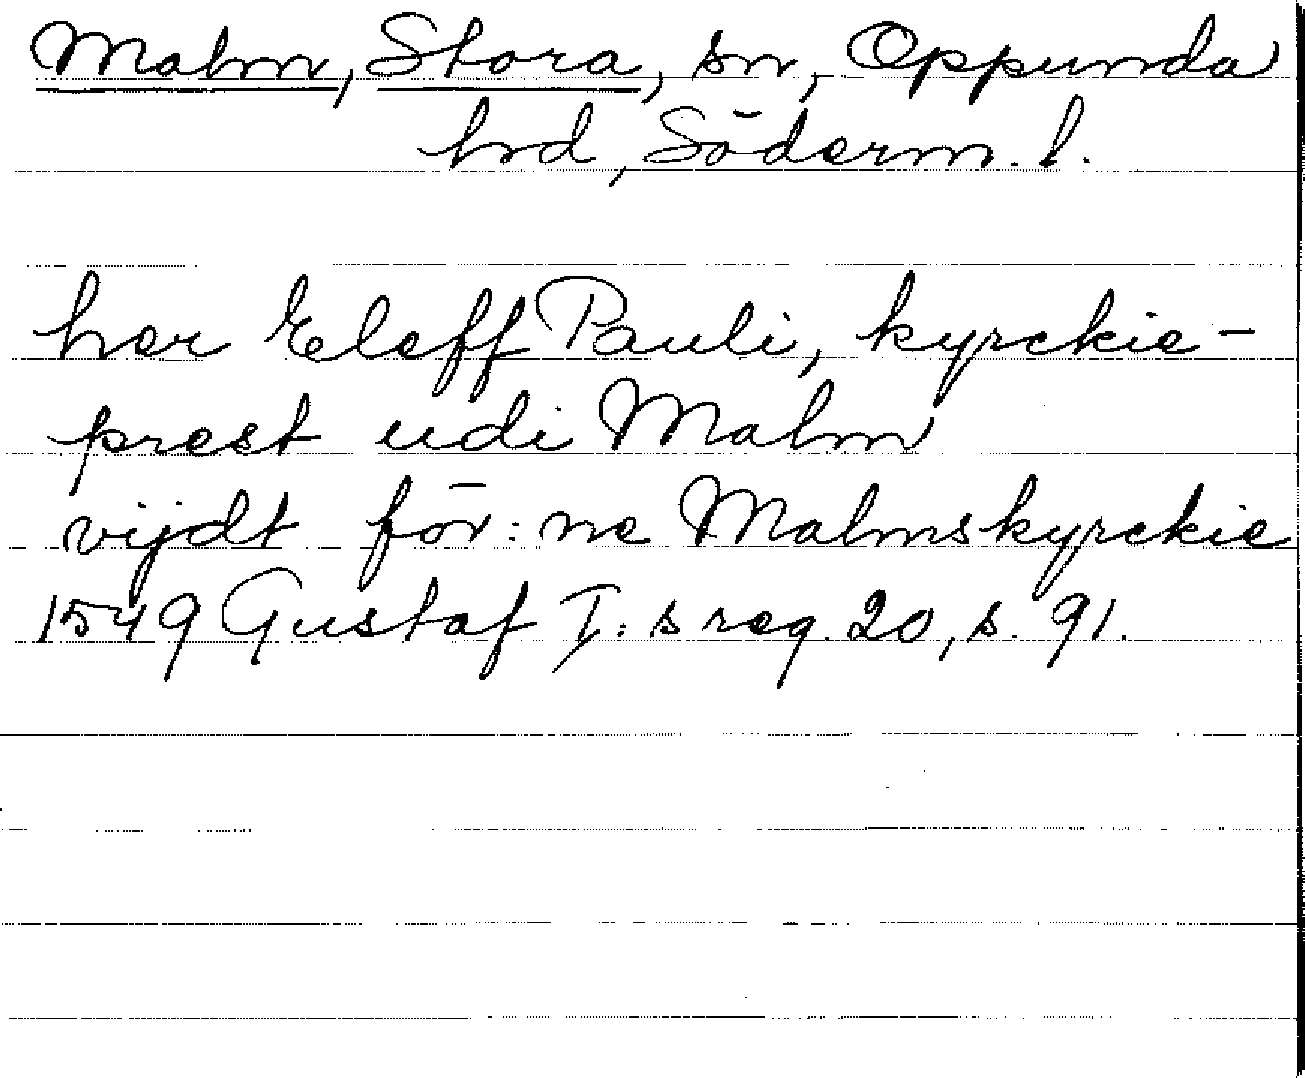 Malm, Stora, sn, Oppunda
hrd, Söderm. l.
her Eleff Pauli, kyrckie-
prest udi Malm
vijdt för:ne Malmskyrckie
1549 Gustaf I:s reg. 20, s. 91.